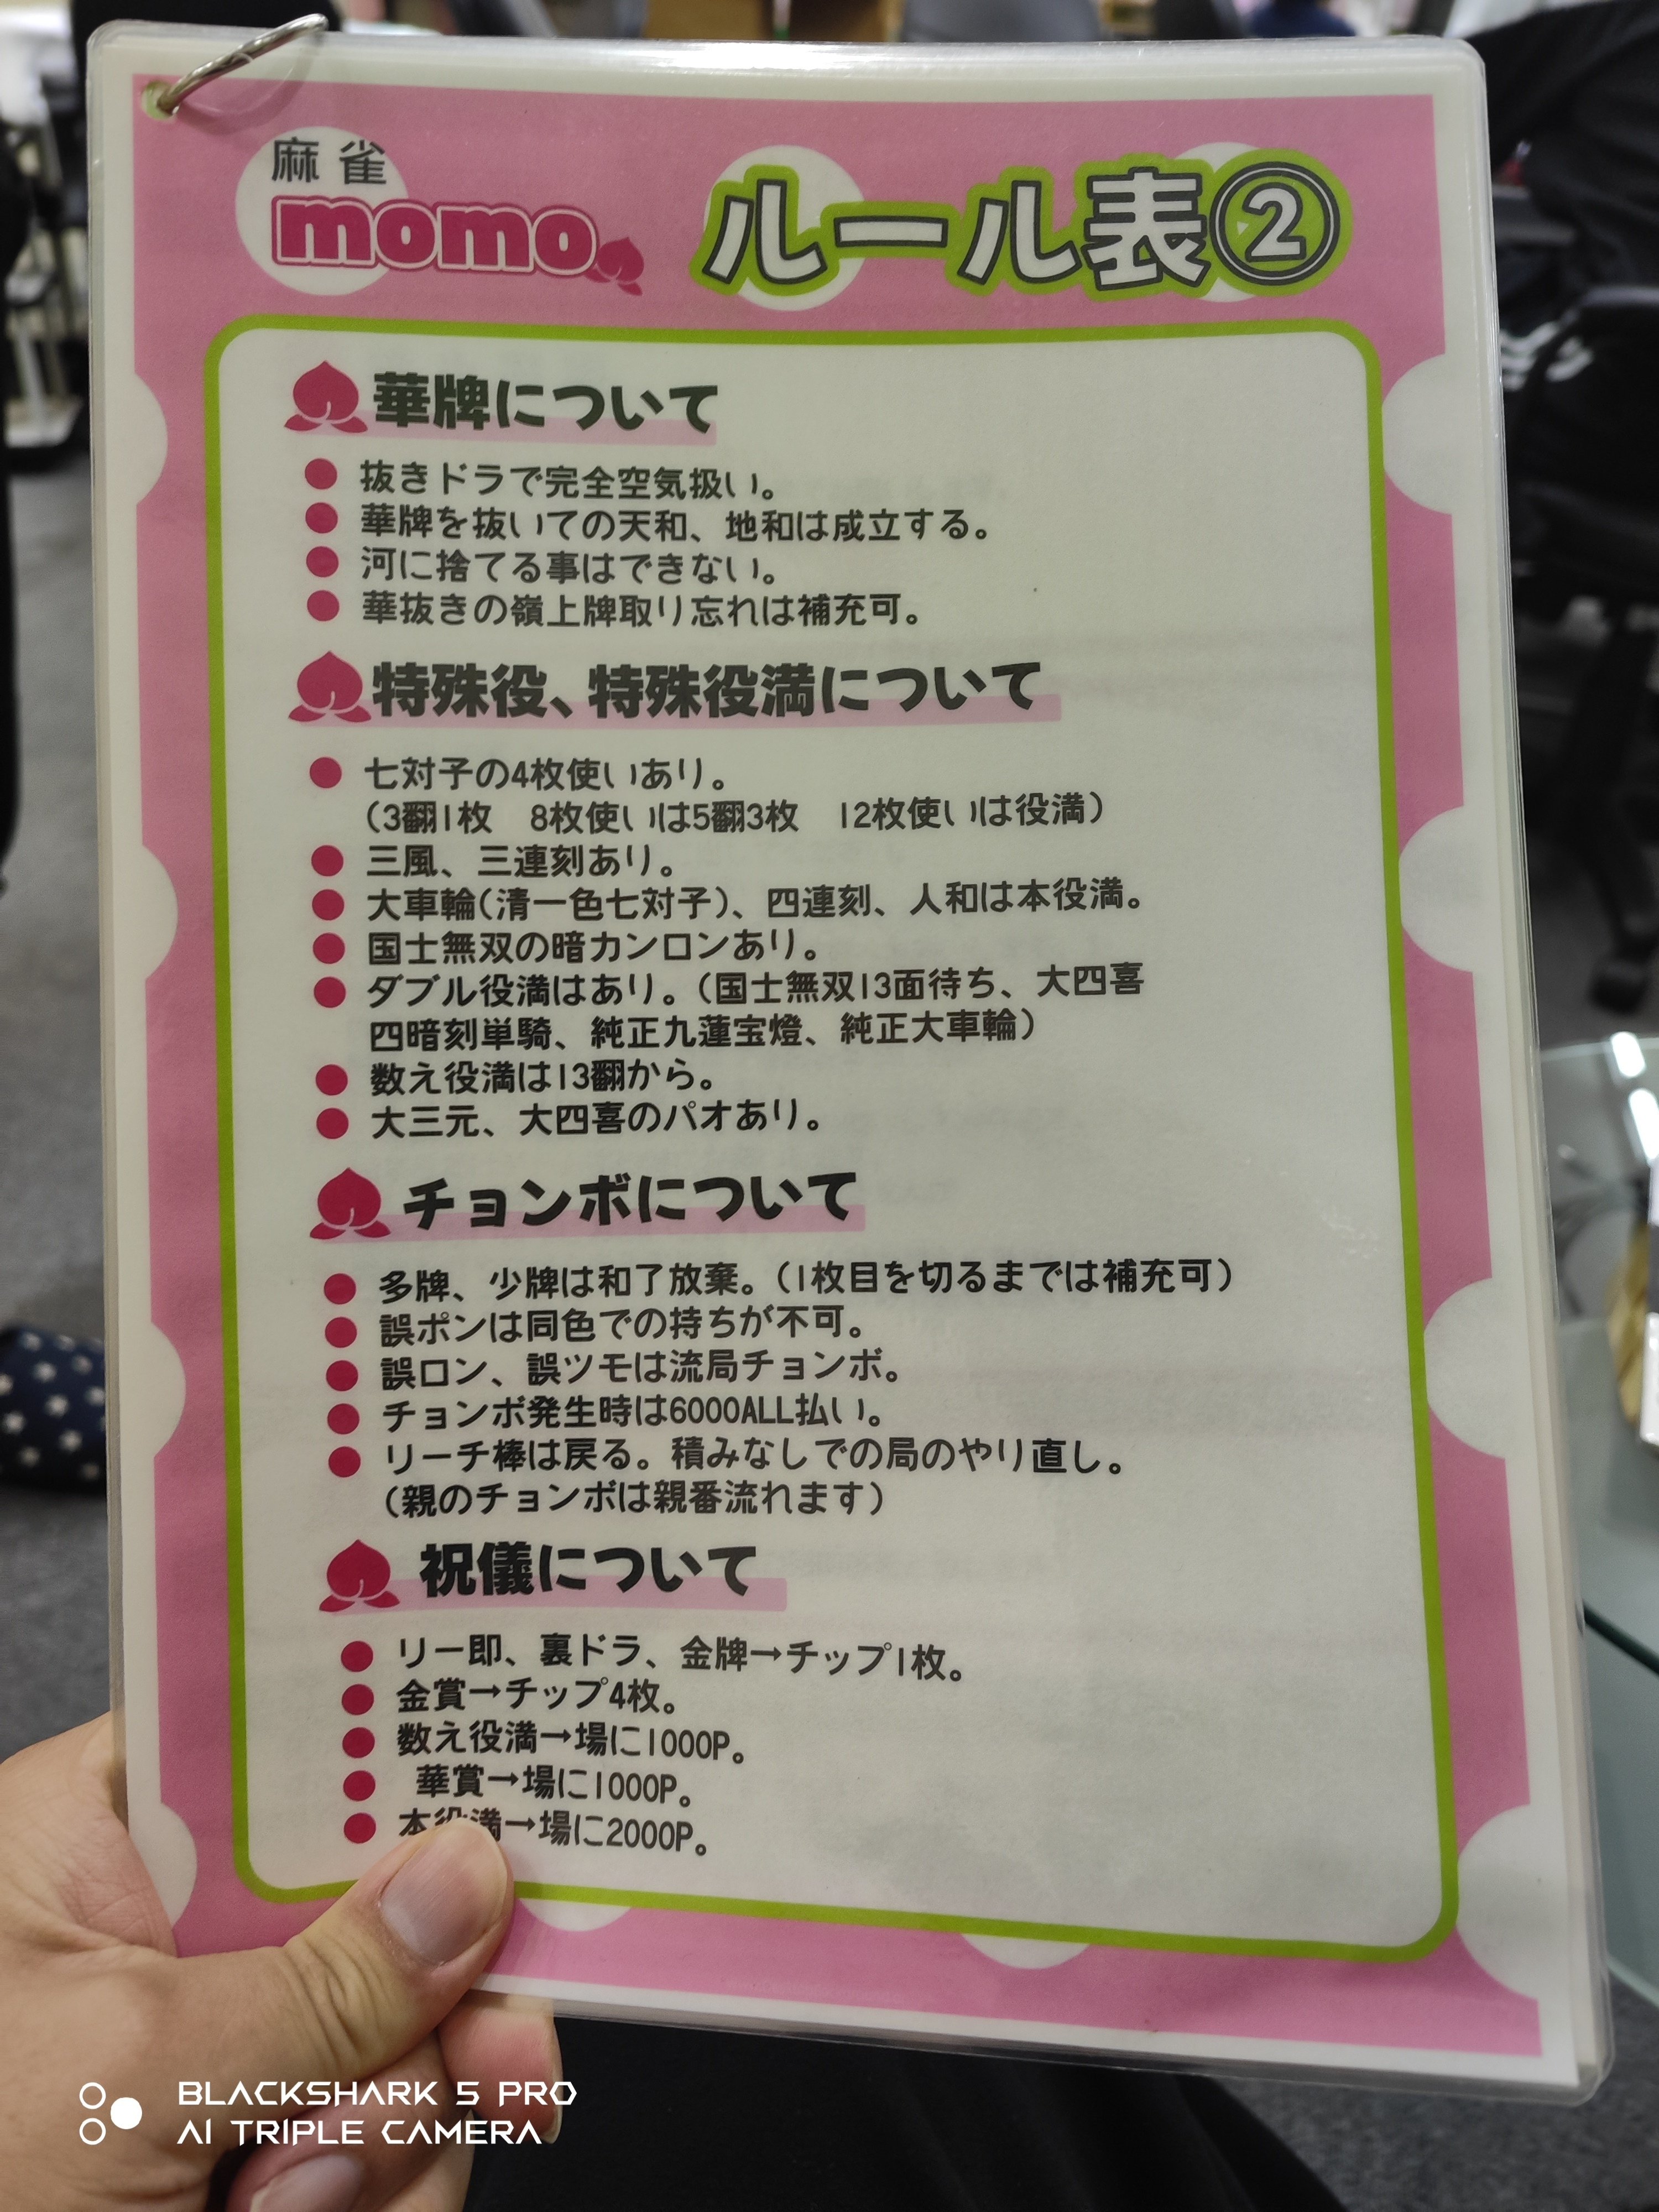 麻雀
momo
ルール表②
華牌について
● 抜きドラで完全空気扱い。
● 華牌を抜いての天和、地和は成立する。
● 河に捨てる事はできない。
● 華抜きの嶺上牌取り忘れは補充可。
特殊役、特殊役満について
● 七対子の4枚使いあり。
(3翻1枚 8枚使いは5翻3枚 12枚使いは役満)
● 三風、三連刻あり。
● 大車輪(清一色七対子)、四連刻、人和は本役満。
● 国士無双の暗カンロンあり。
● ダブル役満はあり。(国士無双13面待ち、大四喜
四暗刻単騎、純正九蓮宝燈、純正大車輪)
● 数え役満は13翻から。
● 大三元、大四喜のパオあり。
チョンボについて
● 多牌、少牌は和了放棄。(1枚目を切るまでは補充可)
● 誤ポンは同色での持ちが不可。
● 誤ロン、誤ツモは流局チョンボ。
● チョンボ発生時は6000ALL払い。
● リーチ棒は戻る。積みなしでの局のやり直し。
(親のチョンボは親番流れます)
祝儀について
● リー即、裏ドラ、金牌→チップ1枚。
● 金賞→チップ4枚。
● 数え役満→場に1000P。
● 華賞→場に1000P。
● 本役満→場に2000P。
BLACKSHARK 5 PRO
AI TRIPLE CAMERA